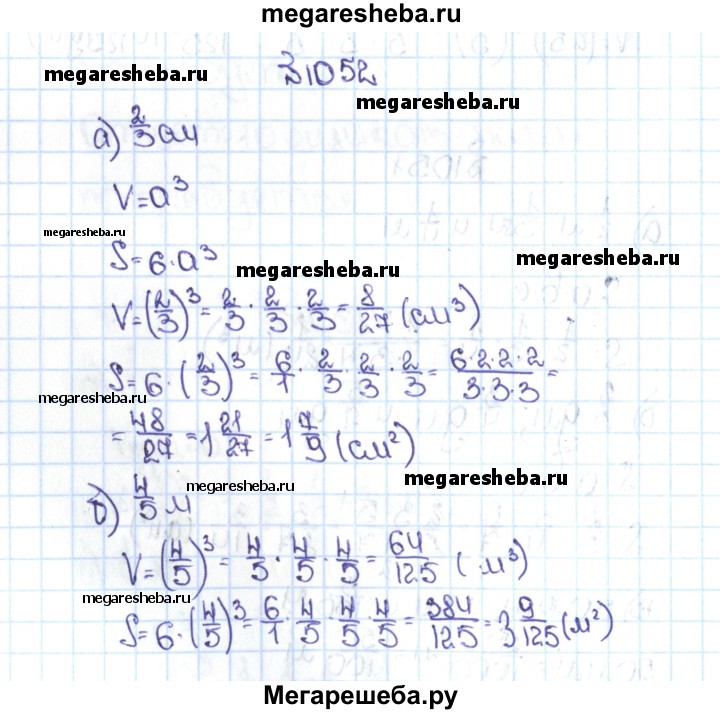 megaresheba.ru
№1052
megaresheba.ru
megaresheba.ru
а) 2/3 см
V=a³
megaresheba.ru
S=6·a³
megaresheba.ru
megaresheba.ru
V=(2/3)³=2/3·2/3·2/3=8/27 (см³)
S=6·(2/3)³=6/1·2/3·2/3·2/3=6·2·2·2/3·3·3=
megaresheba.ru
=48/27=1 21/27=1 7/9 (см²)
megaresheba.ru
б) 4/5 м
megaresheba.ru
V=(4/5)³=4/5·4/5·4/5=64/125 (м³)
megaresheba.ru
S=6·(4/5)³=6/1·4/5·4/5·4/5=384/125=3 9/125 (м²)
Мегарешеба.ру